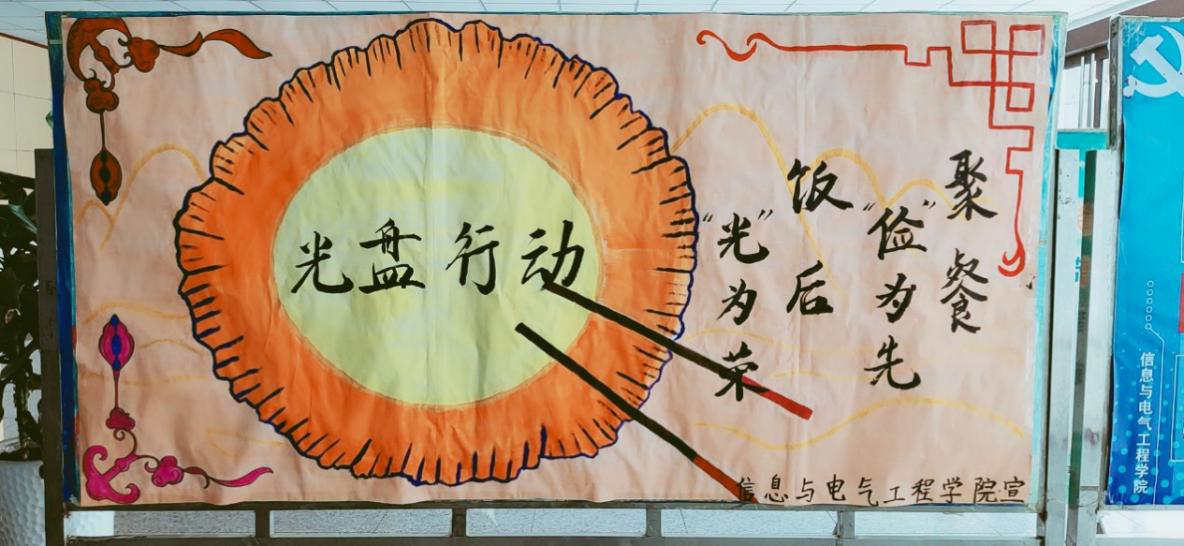 光盘行动
聚餐
“俭”为先
饭后
“光”为荣
信息与电气工程学院宣
信息与电气工程学院